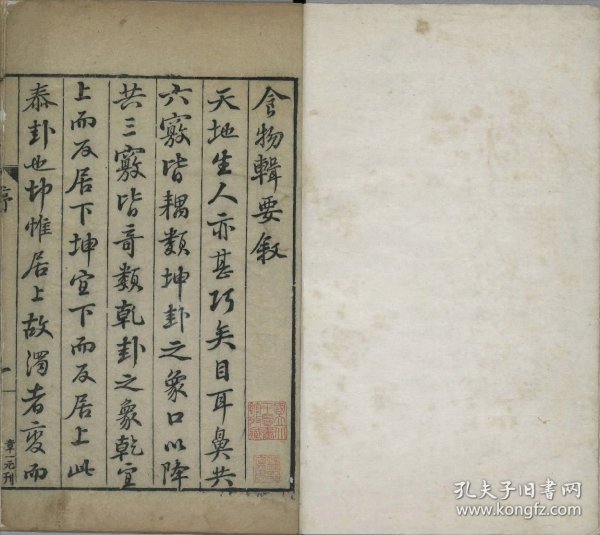 食物輯要叙
天地生人亦甚巧矣目耳鼻共
六竅皆耦類坤卦之象口以降
共三竅皆奇類乾卦之象乾宜
上而反居下坤宜下而反居上此
泰卦也坤惟居上故濁者变而
序
一
章一元刊
孔夫子旧书网
kongfz.com